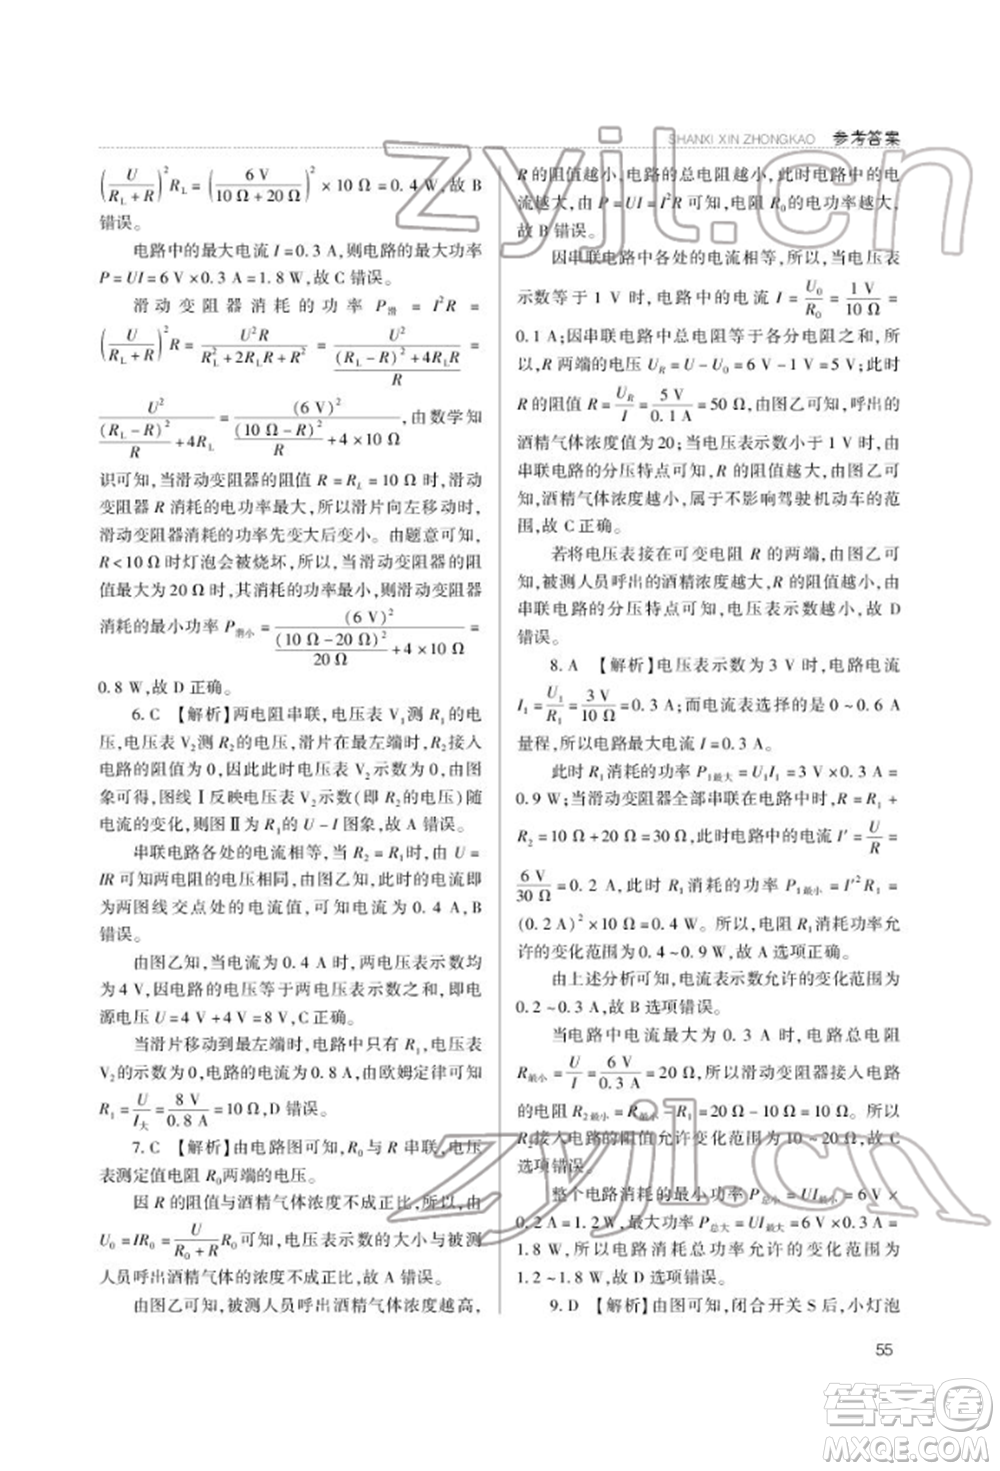 SHANXI XIN ZHONGKAO 参考答案
(U/(R_L+R))²R_L=(6 V/(10 Ω+20 Ω))²×10 Ω=0.4 W,故 B
错误。
电路中的最大电流 I=0.3 A,则电路的最大功率
P=UI=6 V×0.3 A=1.8 W,故 C 错误。
滑动变阻器消耗的功率 P滑=I²R=
(U/(R_L+R))²R=U²R/(R_L²+2R_LR+R²)=U²/(((R_L-R)²+4R_LR)/R)=
U²/((R_L-R)²/R+4R_L)=(6 V)²/((10 Ω-R)²/R+4×10 Ω),由数学知
识可知,当滑动变阻器的阻值 R=R_L=10 Ω 时,滑
动变阻器 R 消耗的电功率最大,所以滑片向左移动时,
滑动变阻器消耗的功率先变大后变小。由题意可知,
R<10 Ω 时灯泡会被烧坏,所以,当滑动变阻器的阻
值最大为 20 Ω 时,其消耗的功率最小,滑动变阻器
消耗的最小功率 P滑小=(6 V)²/((10 Ω-20 Ω)²/20 Ω+4×10 Ω)=
0.8 W,故 D 正确。
6.C 【解析】两电阻串联,电压表 V₁测 R₁的电
压,电压表 V₂测 R₂的电压,滑片在最左端时,R₂接入
电路的阻值为 0,因此此时电压表 V₂示数为 0,由图
象可得,图线Ⅰ反映电压表 V₂示数(即 R₂电压)随
电流的变化,则图Ⅱ为 R₁的 U-I 图象,故 A 错误。
串联电路各处的电流相等,当 R₂=R₁时,由 U=
IR 可知两电阻的电压相等,由图乙知,此时的电流即
为两图线交点处的电流值,可知此电流为 0.4 A,B
错误。
由图乙知,当电流为 0.4 A 时,两电压表示数均
为 4 V,因电路的电压等于两电压表示数之和,即电
源电压 U=4 V+4 V=8 V,C 正确。
当滑片移动到最左端时,电路中只有 R₁,电压表
V₂示数为 0,电路的电流为 0.8 A,由欧姆定律可知
R₁=U/I大=8 V/0.8 A=10 Ω,D 错误。
7.C 【解析】由电路图可知,R₀与 R 串联,电压
表测定值电阻 R₀两端的电压。
因 R 的阻值与酒精气体浓度不成正比,所以,由
U₀=IR₀=U/(R₀+R)R₀可知,电压表示数的大小与被测
人员呼出酒精气体的浓度不成正比,故 A 错误。
由图乙可知,被测人员呼出酒精气体浓度越高,
R 的阻值越小,电路的总电阻越小,此时电路中的电
流越大,由 P=UI=I²R 可知,电阻 R₀的电功率越大,
故 B 错误。
因串联电路中各处的电流相等,所以,当电压表
示数等于 1 V 时,电路中的电流 I=U₀/R₀=1 V/10 Ω=
0.1 A;因串联电路中总电阻等于各分电阻之和,所
以,R 两端的电压 U_R=U-U₀=6 V-1 V=5 V;此时
R 的阻值 R=U_R/I=5 V/0.1 A=50 Ω,由图乙可知,呼出的
酒精气体浓度值为 20;当电压表示数小于 1 V 时,由
串联电路的分压特点可知,R 的阻值越大,由图乙可
知,酒精气体浓度越小,属于不影响驾驶机动车的范
围,故 C 正确。
若将电压表接在可变电阻 R 的两端,由图乙可
知,被测人员呼出的酒精浓度越大,R 的阻值越小,由
串联电路的分压特点可知,电压表示数越小,故 D
错误。
8.A 【解析】电压表示数为 3 V 时,电路电流
I₁=U₁/R₁=3 V/10 Ω=0.3 A;而电流表选择的是 0~0.6 A
量程,所以电路最大电流 I=0.3 A。
此时 R₁消耗的功率 P₁最大=U₁I₁=3 V×0.3 A=
0.9 W;当滑动变阻器全部串联在电路中时,R=R₁+
R₂=10 Ω+20 Ω=30 Ω,此时电路中的电流 I′=U/R=
6 V/30 Ω=0.2 A,此时 R₁消耗的功率 P₁最小=I′²R₁=
(0.2 A)²×10 Ω=0.4 W。所以,电阻 R₁消耗功率允
许的变化范围为 0.4~0.9 W,故 A 选项正确。
由上述分析可知,电流表示数允许的变化范围为
0.2~0.3 A,故 B 选项错误。
当电路中电流最大为 0.3 A 时,电路总电阻
R最小=U/I=6 V/0.3 A=20 Ω,所以滑动变阻器接入电路
的电阻 R₂最小=R最小-R₁=20 Ω-10 Ω=10 Ω。所以
R₂接入电路的阻值允许变化范围为 10~20 Ω,故 C
选项错误。
整个电路消耗的最小功率 P总小=UI最小=6 V×
0.2 A=1.2 W,最大功率 P总大=UI最大=6 V×0.3 A=
1.8 W,所以电路消耗总功率允许的变化范围为
1.2~1.8 W,故 D 选项错误。
9.D 【解析】由图可知,闭合开关 S 后,小灯泡
55
zyjl.cn
zyjl.cn
答案圈
MXQE.COM